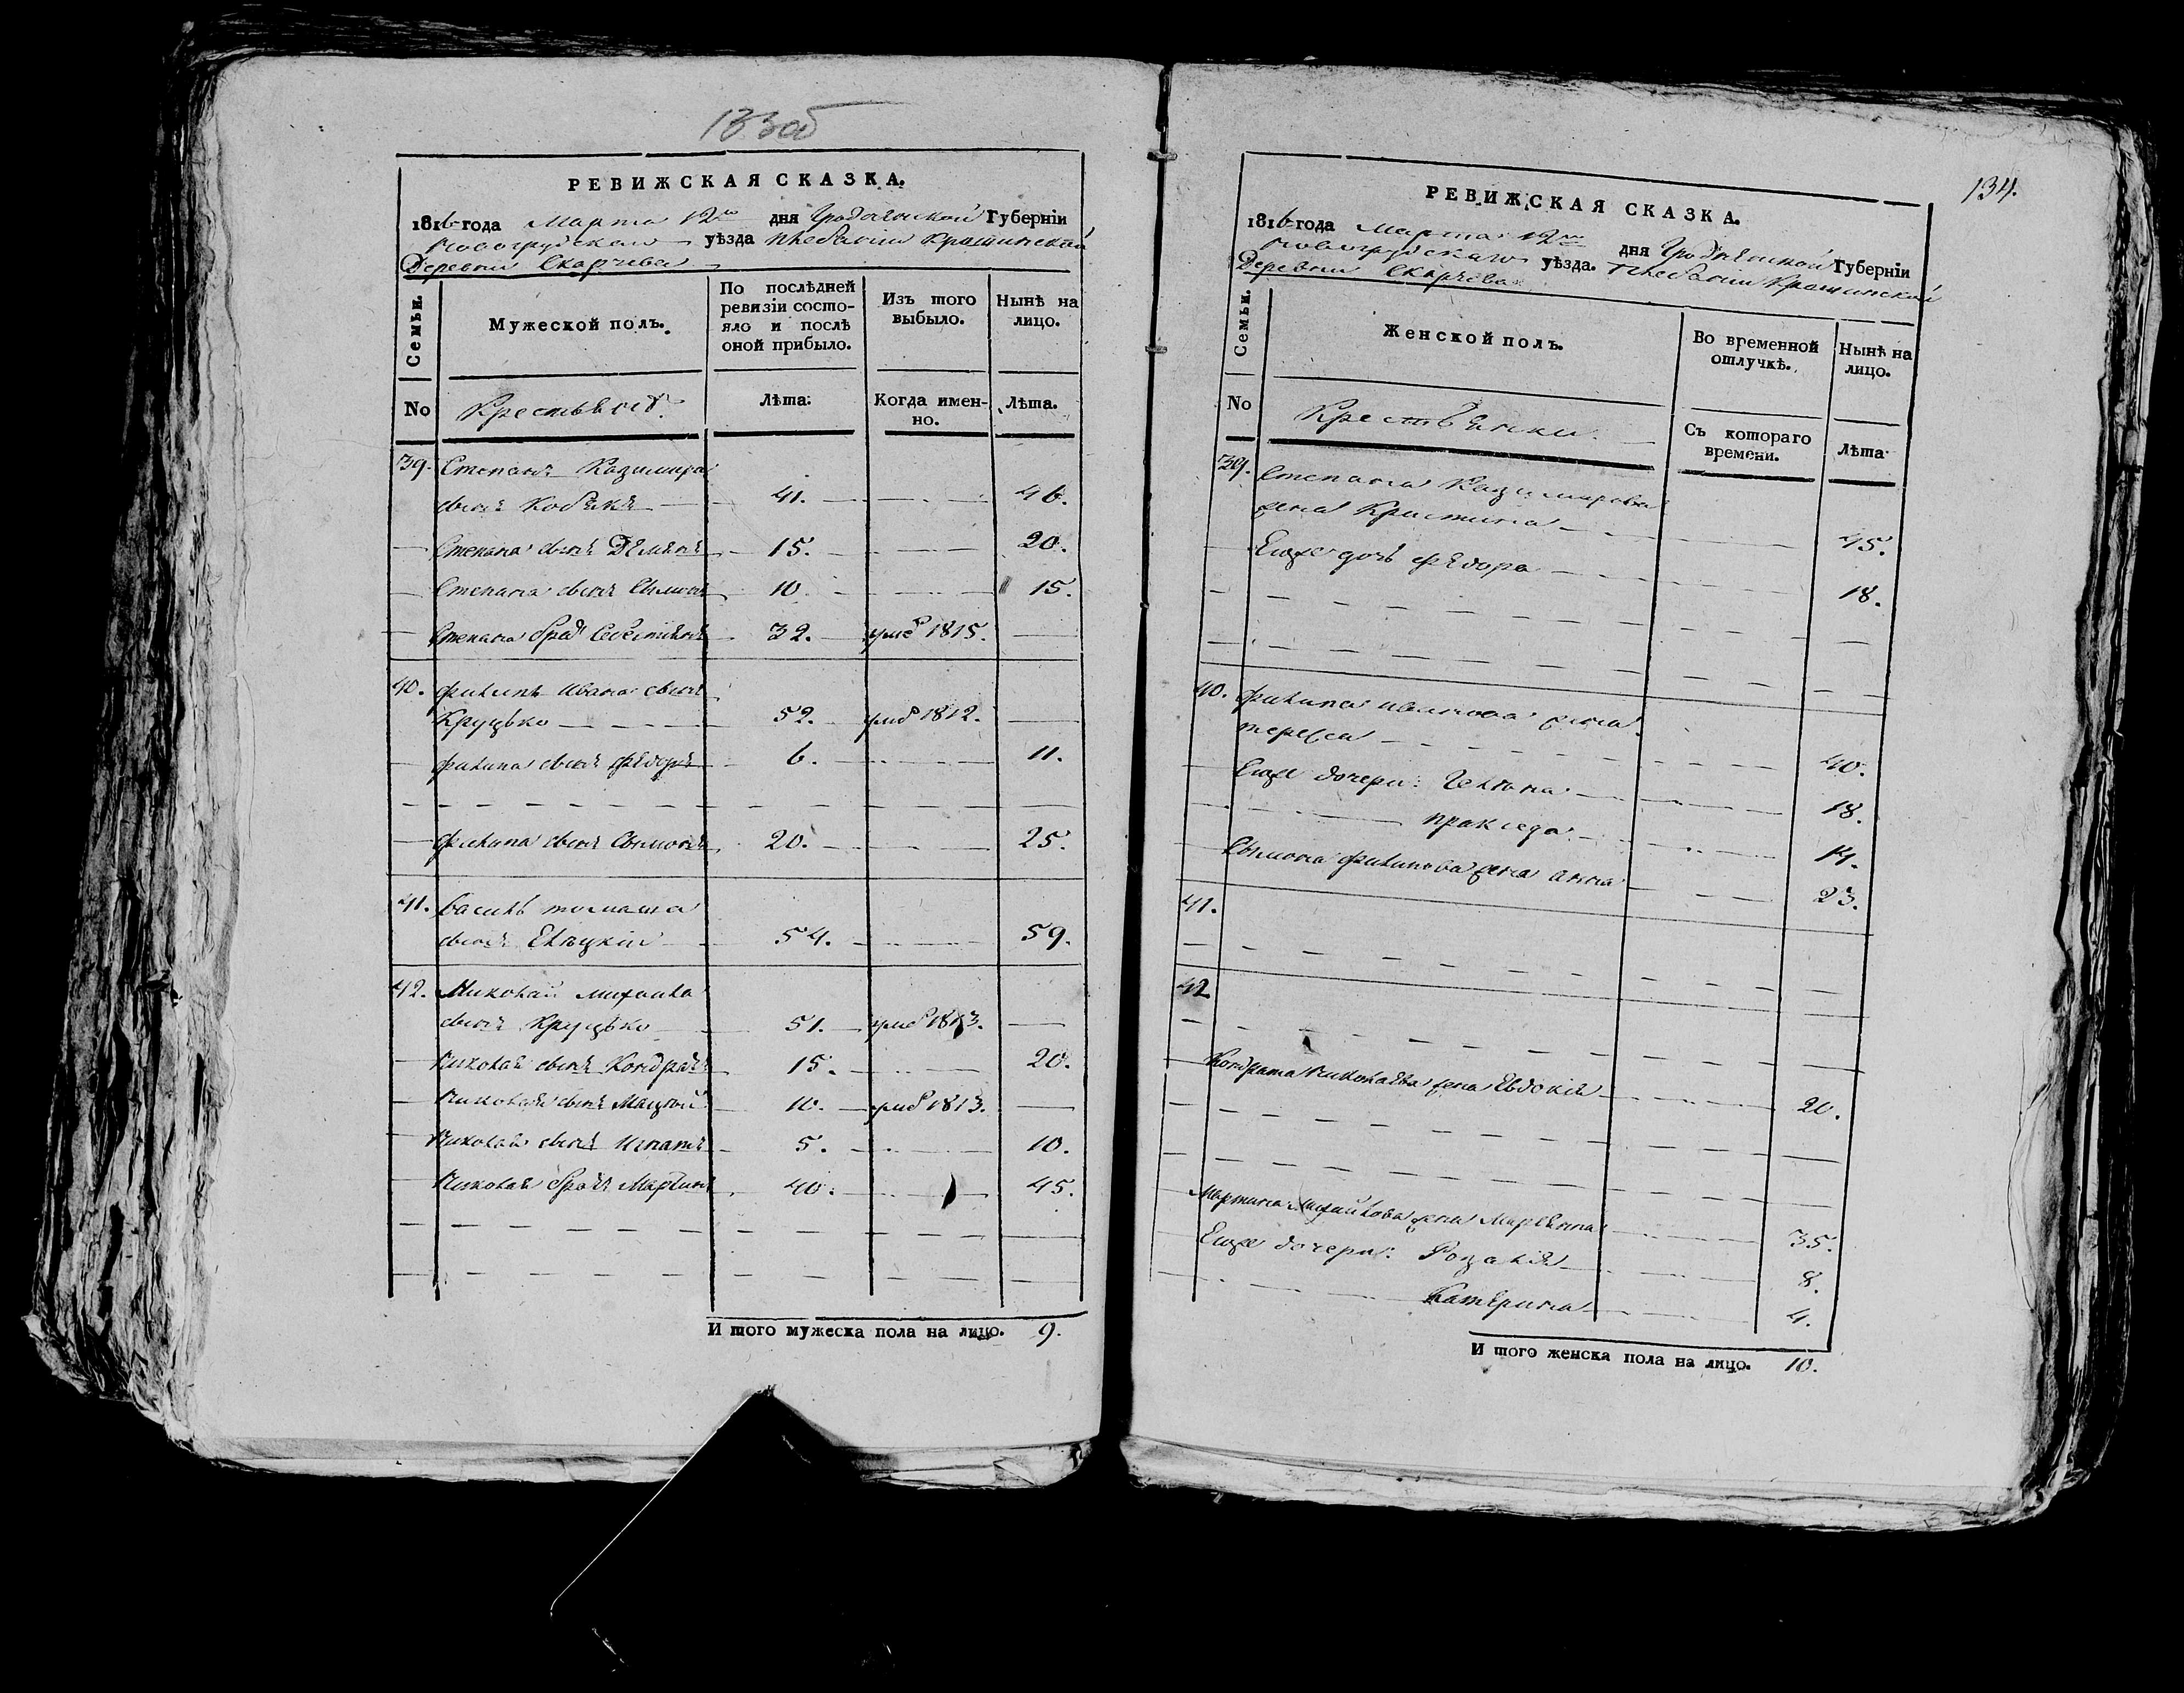 133об
РЕВИЖСКАЯ СКАЗКА.
1816 года Марта 12го дня Гродненской Губерніи
Новогрудскаго уѣзда плебаніи Крошинской
Деревни Скарчева
Семьи. Мужеской полъ. По послѣдней ревизіи состояло и послѣ оной прибыло. Изъ того выбыло. Нынѣ на лицо.
No Крестьянъ. Лѣта. Когда именно. Лѣта.
39. Степанъ Казимира
сынъ 41. 46.
Степана сынъ Демянъ 15. 20.
Степана сынъ Сымонъ 10. 15.
Степана братъ 32. умер 1815.
40. Филипъ Ивана сынъ
Круцько 52. умер 1812.
Филипа сынъ Федоръ 6. 11.
Филипа сынъ Сымонъ 20. 25.
41. Василь томаша
сынъ 54. 59.
42. Николай михаила
сынъ Круцько 51. умер 1813.
Николая сынъ Кондратъ 15. 20.
Николая сынъ Мацѣй 10. умер 1813.
Николая сынъ Игнатъ 5. 10.
Николая братъ Мартинъ 40. 45.
И того мужеска пола на лицо. 9.
134.
РЕВИЖСКАЯ СКАЗКА.
1816 года Марта 12го дня Гродненской Губерніи
Новогрудскаго уѣзда. плебаніи Крошинской
Деревни Скарчева
Семьи. Женской полъ. Во временной отлучкѣ. Нынѣ на лицо.
No Крестьянки. Съ котораго времени. Лѣта
39. Степана Казимирова
жена Кристина 45.
Еще дочь Федора 18.
40. Филипа иванова жена
тереса 40.
Еще дочери: Гелѣна 18.
пракседа 14.
Сымона филипова жена анна 23.
41.
42
Кондрата николаева жена Евдокія 20.
Мартина михайлова жена Марьянна 35.
Еще дочери: Розалія 8.
Катерина 4.
И того женска пола на лицо. 10.